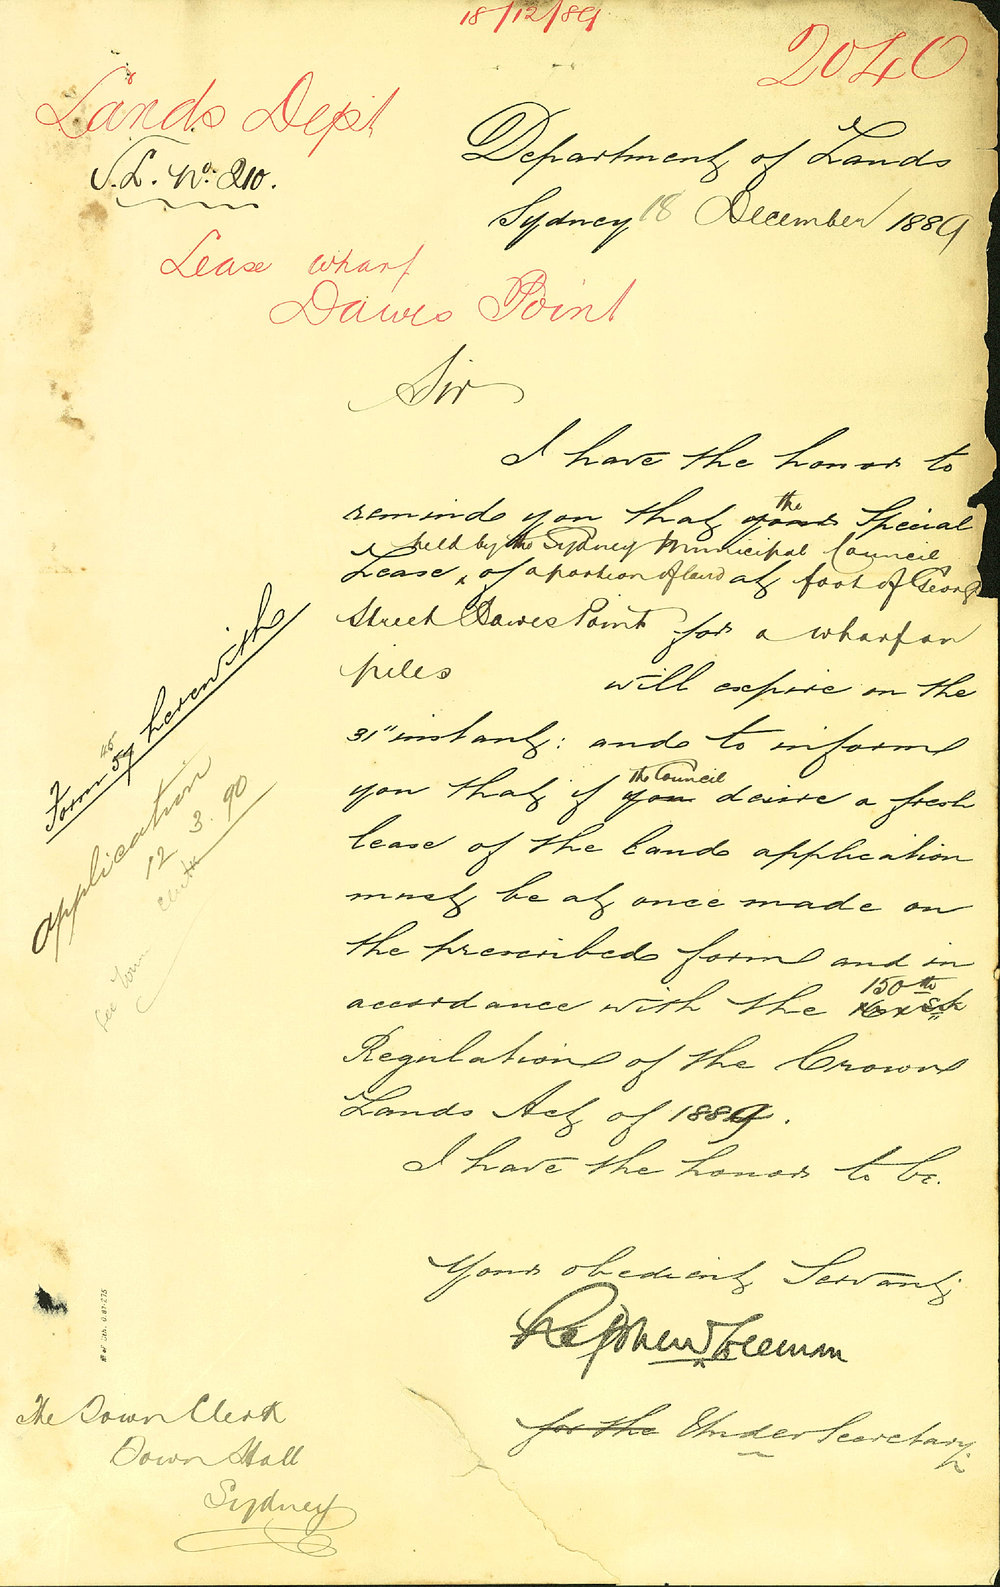 18/12/89
2040
Lands Dept
S.L. No. 210.
Department of Lands
Sydney 18 December 1889
Lease wharf
Dawes Point
Sir
I have the honor to
remind you that your the Special
held by the Sydney Municipal Council
Lease, of a portion of land at foot of George
Street Dawes Point for a wharf on
piles will expire on the
31st instant: and to inform
you that if you the Council desire a fresh
lease of the land application
must be at once made on
the prescribed form and in
accordance with the 150th
Regulation of the Crown
Lands Act of 1889.
I have the honor to be.
Your obedient Servant,
for the Under Secretary
Form 45 herewith
Application
12 3. 90
See Town Clerk
The Town Clerk
Town Hall
Sydney